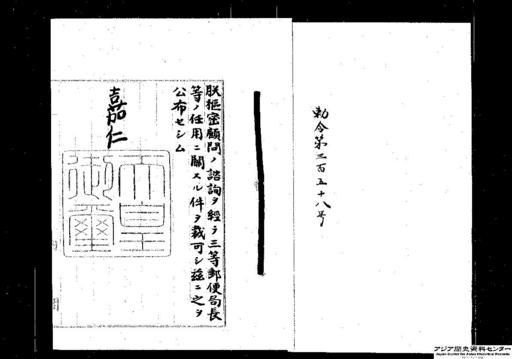 勅令第三百五十八号
朕枢密顧問ノ諮詢ヲ経テ三等郵便局長
等ノ任用ニ関スル件ヲ裁可シ茲ニ之ヲ
公布セシム
嘉仁
天皇
御璽
アジア歴史資料センター
Japan Center for Asian Historical Records